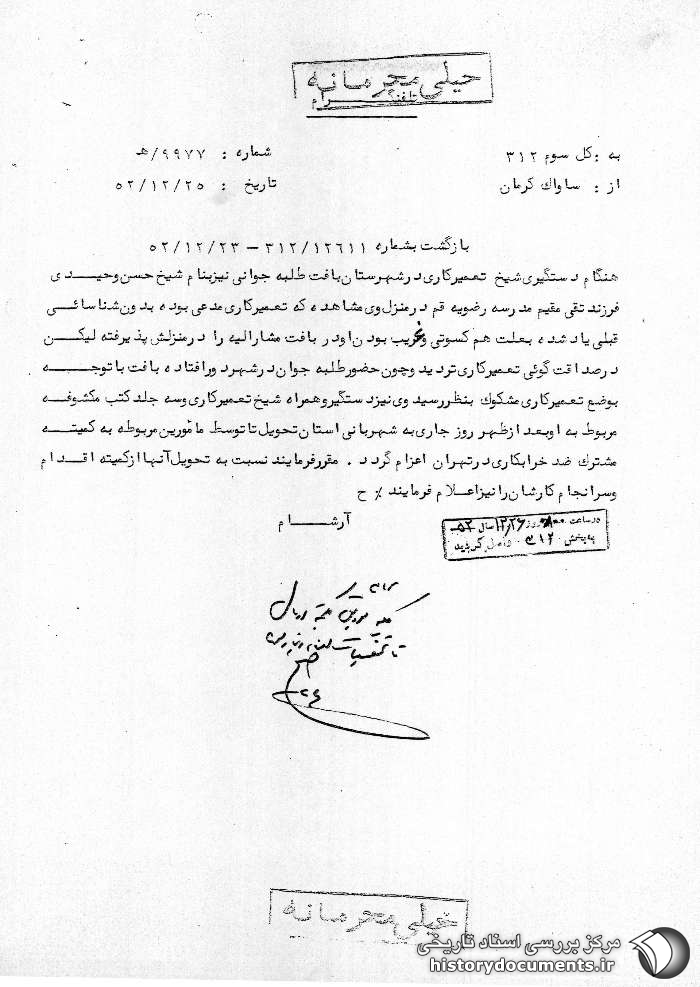 خیلی محرمانه
تلفنگرام
به : کل سوم ۳۱۲
شماره : ۹۹۷۷/هـ
از : ساواک کرمان
تاریخ : ۵۲/۱۲/۲۵
بازگشت بشماره ۳۱۲/۱۲۶۱۱ – ۵۲/۱۲/۲۳
هنگام دستگیری شیخ تعمیرکاری در شهرستان بافت طلبه جوانی نیز بنام شیخ حسن وحیدی
فرزند تقی مقیم مدرسه رضویه قم در منزل وی مشاهده که تعمیرکاری مدعی بوده بدون شناسائی
قبلی یاد شده بعلت هم کسوتی و غریب بودن او در بافت مشارالیه را در منزلش پذیرفته لیکن
در صداقت گوئی تعمیرکاری تردید و چون حضور طلبه جوان در شهر دورافتاده بافت با توجه
بوضع تعمیرکاری مشکوک بنظر رسید وی نیز دستگیر و همراه شیخ تعمیرکاری و سه جلد کتب مکشوفه
مربوط به او بعد از ظهر روز جاری به شهربانی استان تحویل تا توسط مامٔورین مربوطه به کمیته
مشترک ضد خرابکاری در تهران اعزام گردد . مقرر فرمایند نسبت به تحویل آنها از کمیته اقدام
و سرانجام کارشان را نیز اعلام فرمایند٪ ح
آرشام
در ساعت روز ۱۲/۲۶ سال ۵۲
به بخش ۳۱۲ واصل گردید
خیلی محرمانه
مرکز بررسی اسناد تاریخی
historydocuments.ir